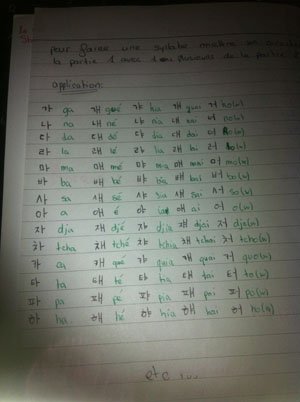 pour faire une syllabe mettre
la partie 1 avec 1 ou plusieurs de la partie
application:
가 ga 개 gué 갸 hia 걔 guai 거 ho(w)
나 na 내 né 냐 nia 냬 nai 너 no(w)
다 da 대 dé 댜 dia 댸 dai 더
라 la 래 lé 랴 lia 럐 lai 러
마 ma 매 mé 먀 mia 먜 mai 머 mo(w)
바 ba 배 bé 뱌 bia 뱨 bai 버 bo(w)
사 sa 새 sé 샤 sia 섀 sai 서 so(w)
아 a 애 é 야 얘 ai 어 o(w)
자 dja 재 djé 쟈 djia 쟤 djai 저 djo(w)
차 tcha 채 tché 챠 tchia 챼 tchai 처 tcho(w)
카 ca 캐 qué 캬 quia 컈 quai 커 quo(w)
타 ta 태 té 탸 tia 턔 tai 터 to(w)
파 pa 패 pe 퍄 pia 퍠 pai 퍼 po(w)
하 ha 해 hé 햐 hia 햬 hai 허 ho(w)
etc ...